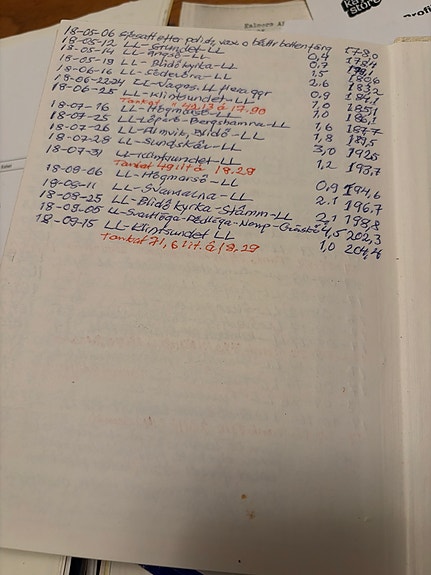 Profi
18-05-06 efter polish, vax o båtbottenfärg 178,0
18-05-12 LL-Grändel-LL 0,4 178,4
18-05-14 LL-Ängsö-LL 0,7
18-05-19 LL-Blidökyrka-LL 1,5
18-06-16 LL-Söderöra-LL 2,6 183,2
18-06-2224 LL-Vagnö.LL flera ggr 0,9
18-06-25 LL-Klintsundet-LL 1,0 185,1
Tankat 49,13 à 17.90
18-07-16 LL-Högmarsö-LL 1,0 186,1
18-07-25 LL-Löparö-Bergshamna-LL 1,6 187,7
18-07-26 LL-Almvik, Blidö-LL 1,8 189,5
18-07-28 LL-Sundskär-LL 3,0 192,5
18-07-31 LL-Klintsundet-LL 1,2 193,7
Tankat 49 lit à 18.29
18-08-06 LL-Högmarsö-LL 0,9 194,6
18-08-11 LL-Svanalna-LL 2.1 196.7
18-08-25 LL-Blidö kyrka-Stämm-LL 2,1 198,8
18-09-05 LL-Svartlöga-Rödlöga-Norrp-Gräskö 4,5 202,3
18-09-15 LL-Klintsundet LL 1,0 204,4
Tankat 71,6 lit. à 18,29